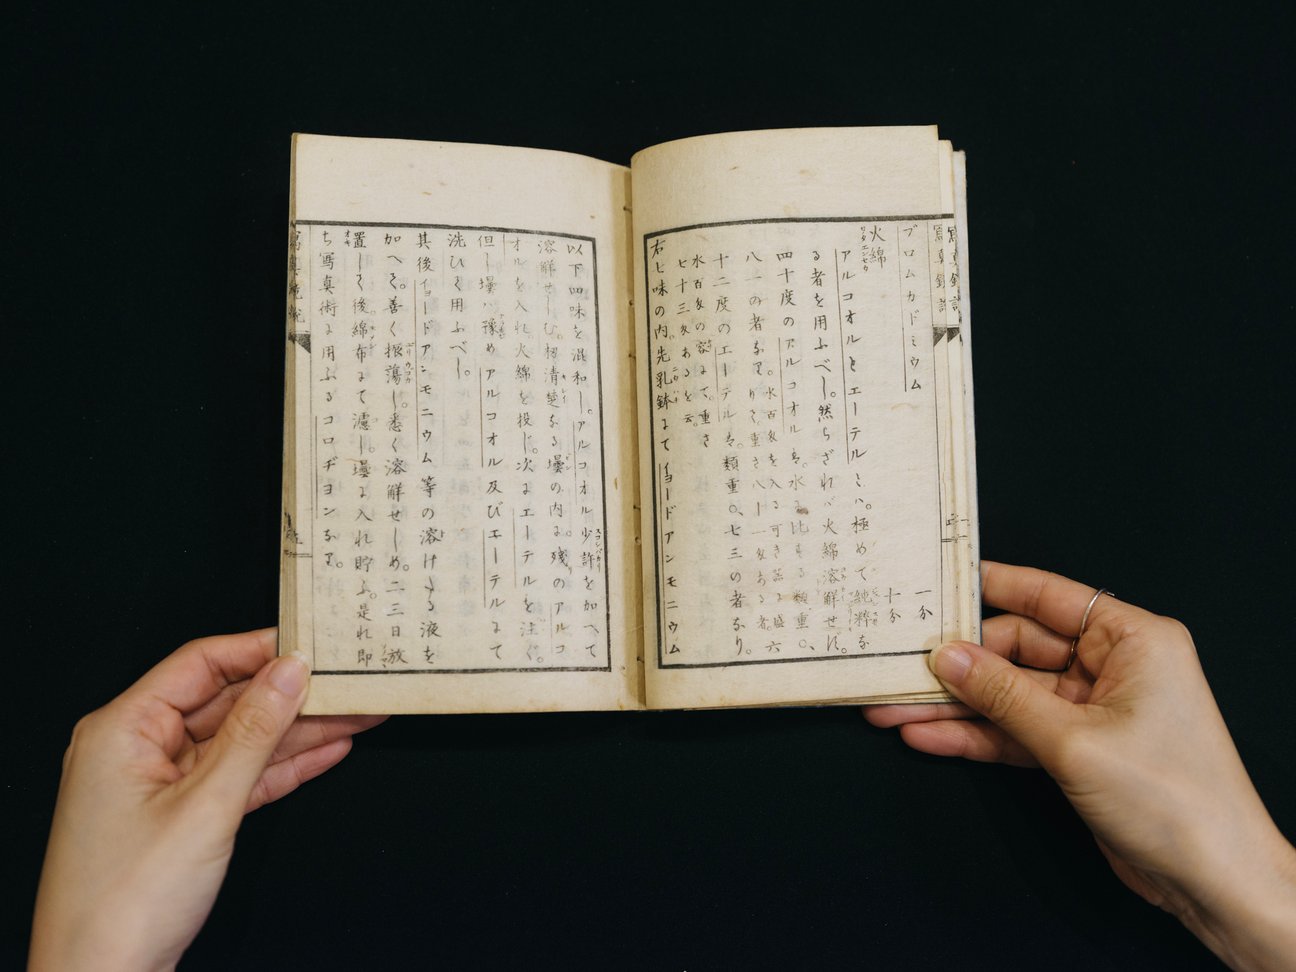 ブロムカドミウム 一分
火綿 ワタエンセウ 十分
アルコオルとエーテルとハ。極めて純粋な
る者を用ふべし。然らざれバ火綿溶解せず。
四十度のアルコオル
八一の者なり
十二度のエーテル 類重〇、七三の者なり。
水百多の容
七十三多あるを云。
右七味の内先乳鉢にて イヨードアンモニウム
以下四味を混和し。アルコオル少許を加へて
溶解せしむ。極清楚なる壜の内に。残のアルコ
オルを入れ火綿を投じ。次にエーテルを注ぐ。
但し壜ハ豫めアルコオル及びエーテルにて
洗ひて用ふべし。
其後イヨードアンモニウム等の溶けたる液を
加へて。善く振蕩し。悉く溶解せしめ。二三日放
置して後綿布にて濾し。壜に入れ貯ふ。是れ即
ち写真術に用ふるコロヂヨンなり。